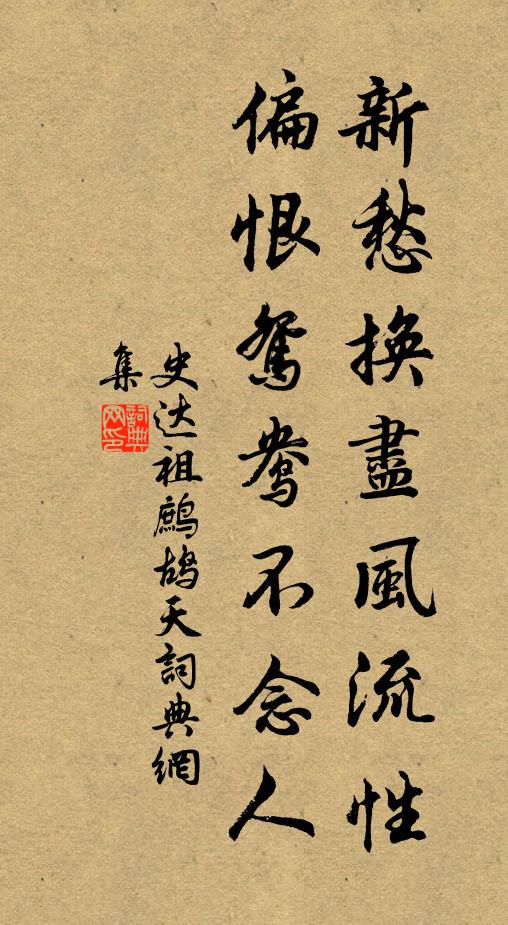 新愁換盡風流性
偏恨鴛鴦不念人
史达祖鷓鴣天詞典網
集
詞典網印